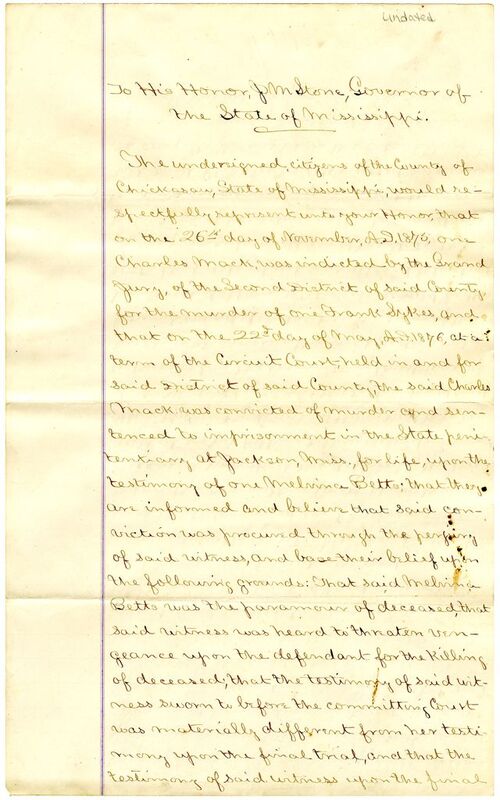 undated
To His Honor, J M Stone, Governor of
the State of Mississippi.
The undersigned, citizens of the County of
Chickasaw, State of Mississippi, would re-
spectfully represent unto your Honor, that
on the 26th day of November, A.D. 1875, one
Charles Mack, was indicted by the Grand
Jury, of the Second District of said County,
for the murder of one Frank Sykes, and
that on the 22d day of May, A.D. 1876, at a
term of the Circuit Court, held in and for
said District of said County, the said Charles
Mack was convicted of murder and sen-
tenced to imprisonment in the State peni-
tentiary at Jackson, Miss., for life, upon the
testimony of one Melvina Betts; that they
are informed and believe that said con-
viction was procured through the perjury
of said witness, and base their belief upon
the following grounds: That said Melvina
Betts was the paramour of deceased, that
said witness was heard to thraten ven-
geance upon the defendant for the killing
of deceased, that the testimony of said wit-
ness sworn to before the committing Court
was materially different from her testi-
mony upon the final trial, and that the
testimony of said witness upon the final